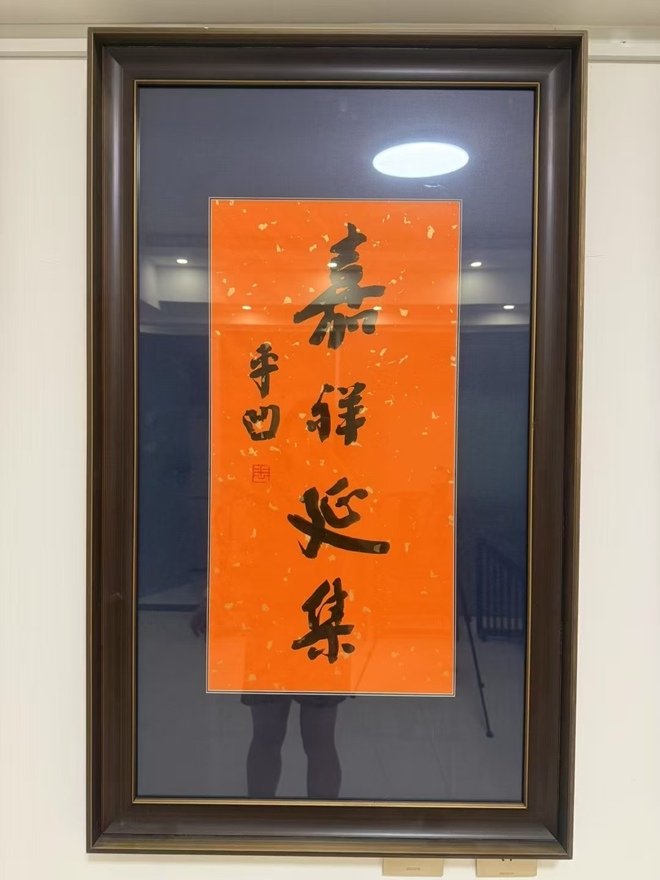 嘉祥延集
平凹